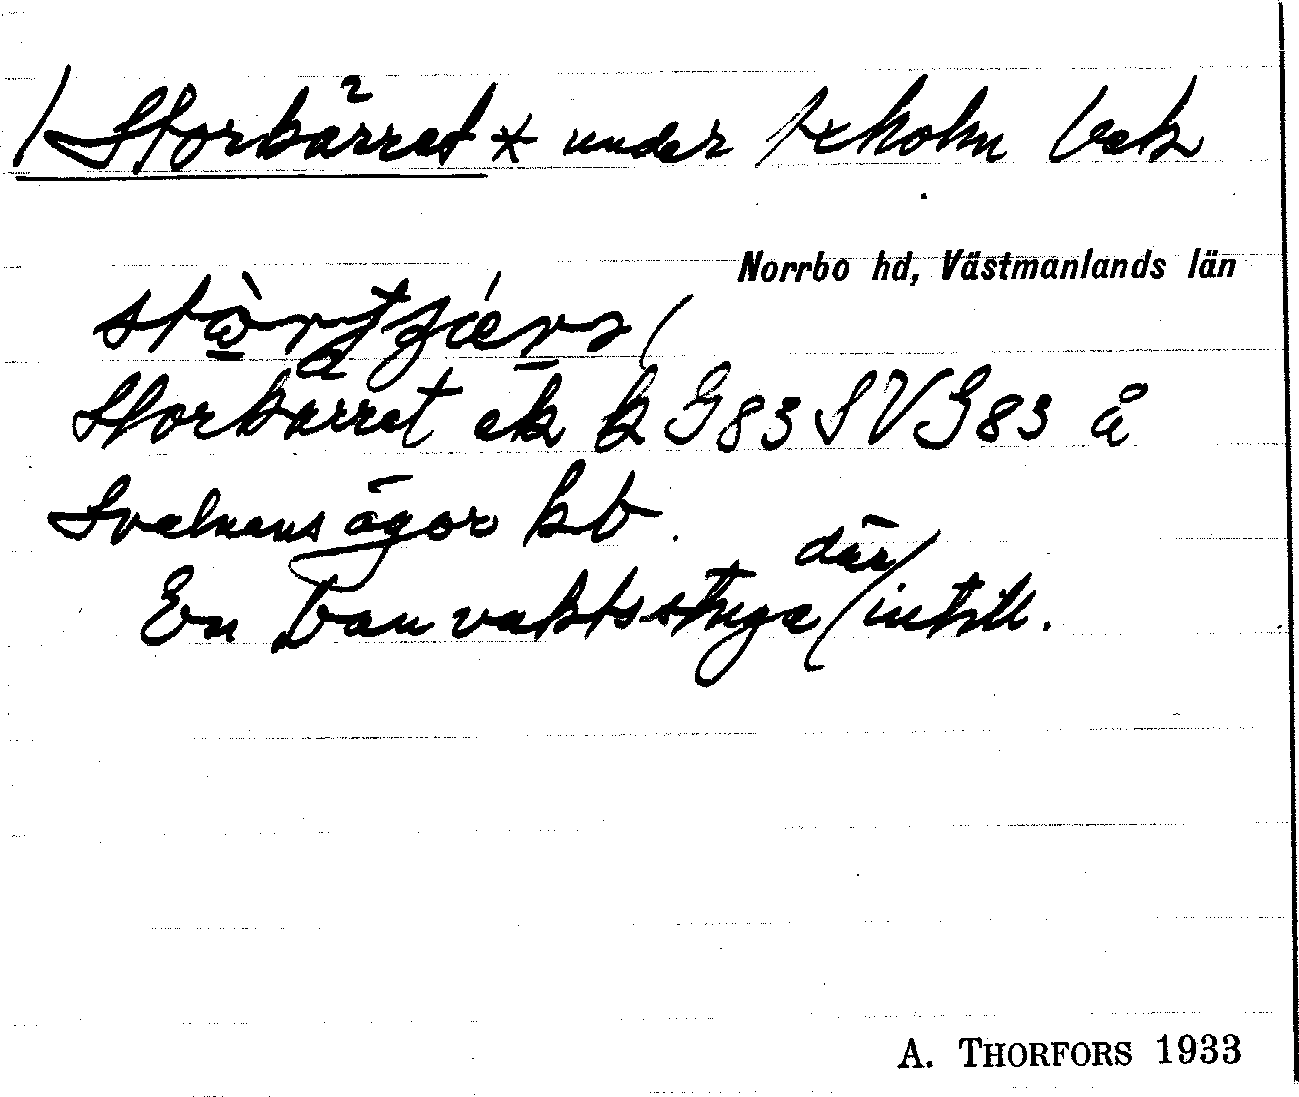 Storkärret * under Axholm bek
Norrbo hd, Västmanlands län
Storkärret ek k G83 SVG83 å
Svalnans ägor kb.
En banvaktsstuga där intill.
A. THORFORS 1933